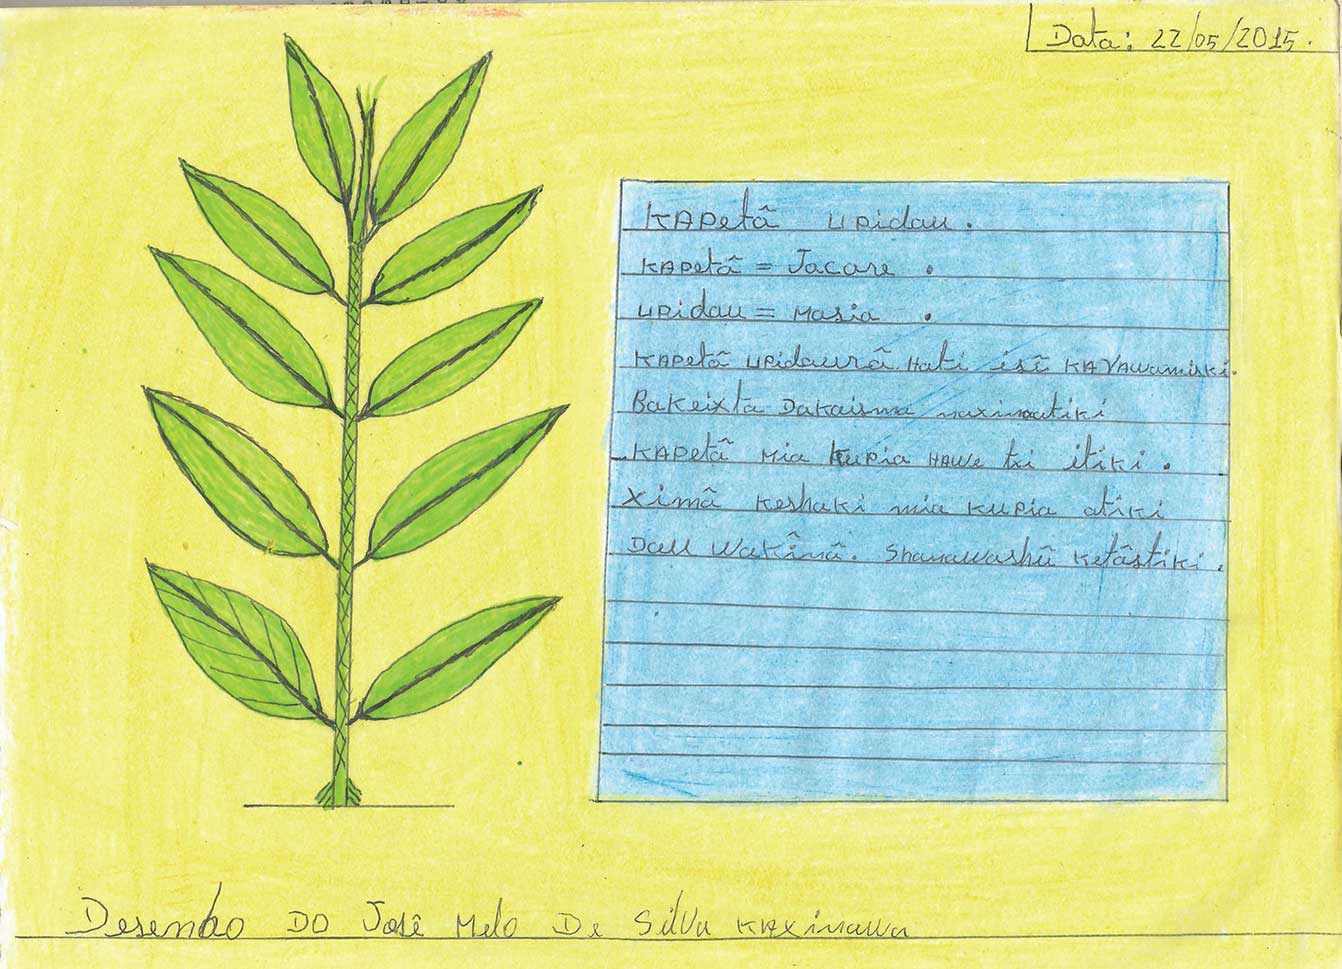 Data: 22/05/2015.
KAPetã upidau.
KAPetã = Jacare.
upidau = Masia.
KAPetã upidaurã Hati isĩ KAYAwamiski.
Bakeixta Dakaisma
KAPetã Mia kupia HAWe txi itiki.
Ximã keshaki mia kupia atiki
Dau WaKĩnã. Shanawashũ Ketãstiki.
Desenho DO José Melo De Silva KAXinawa